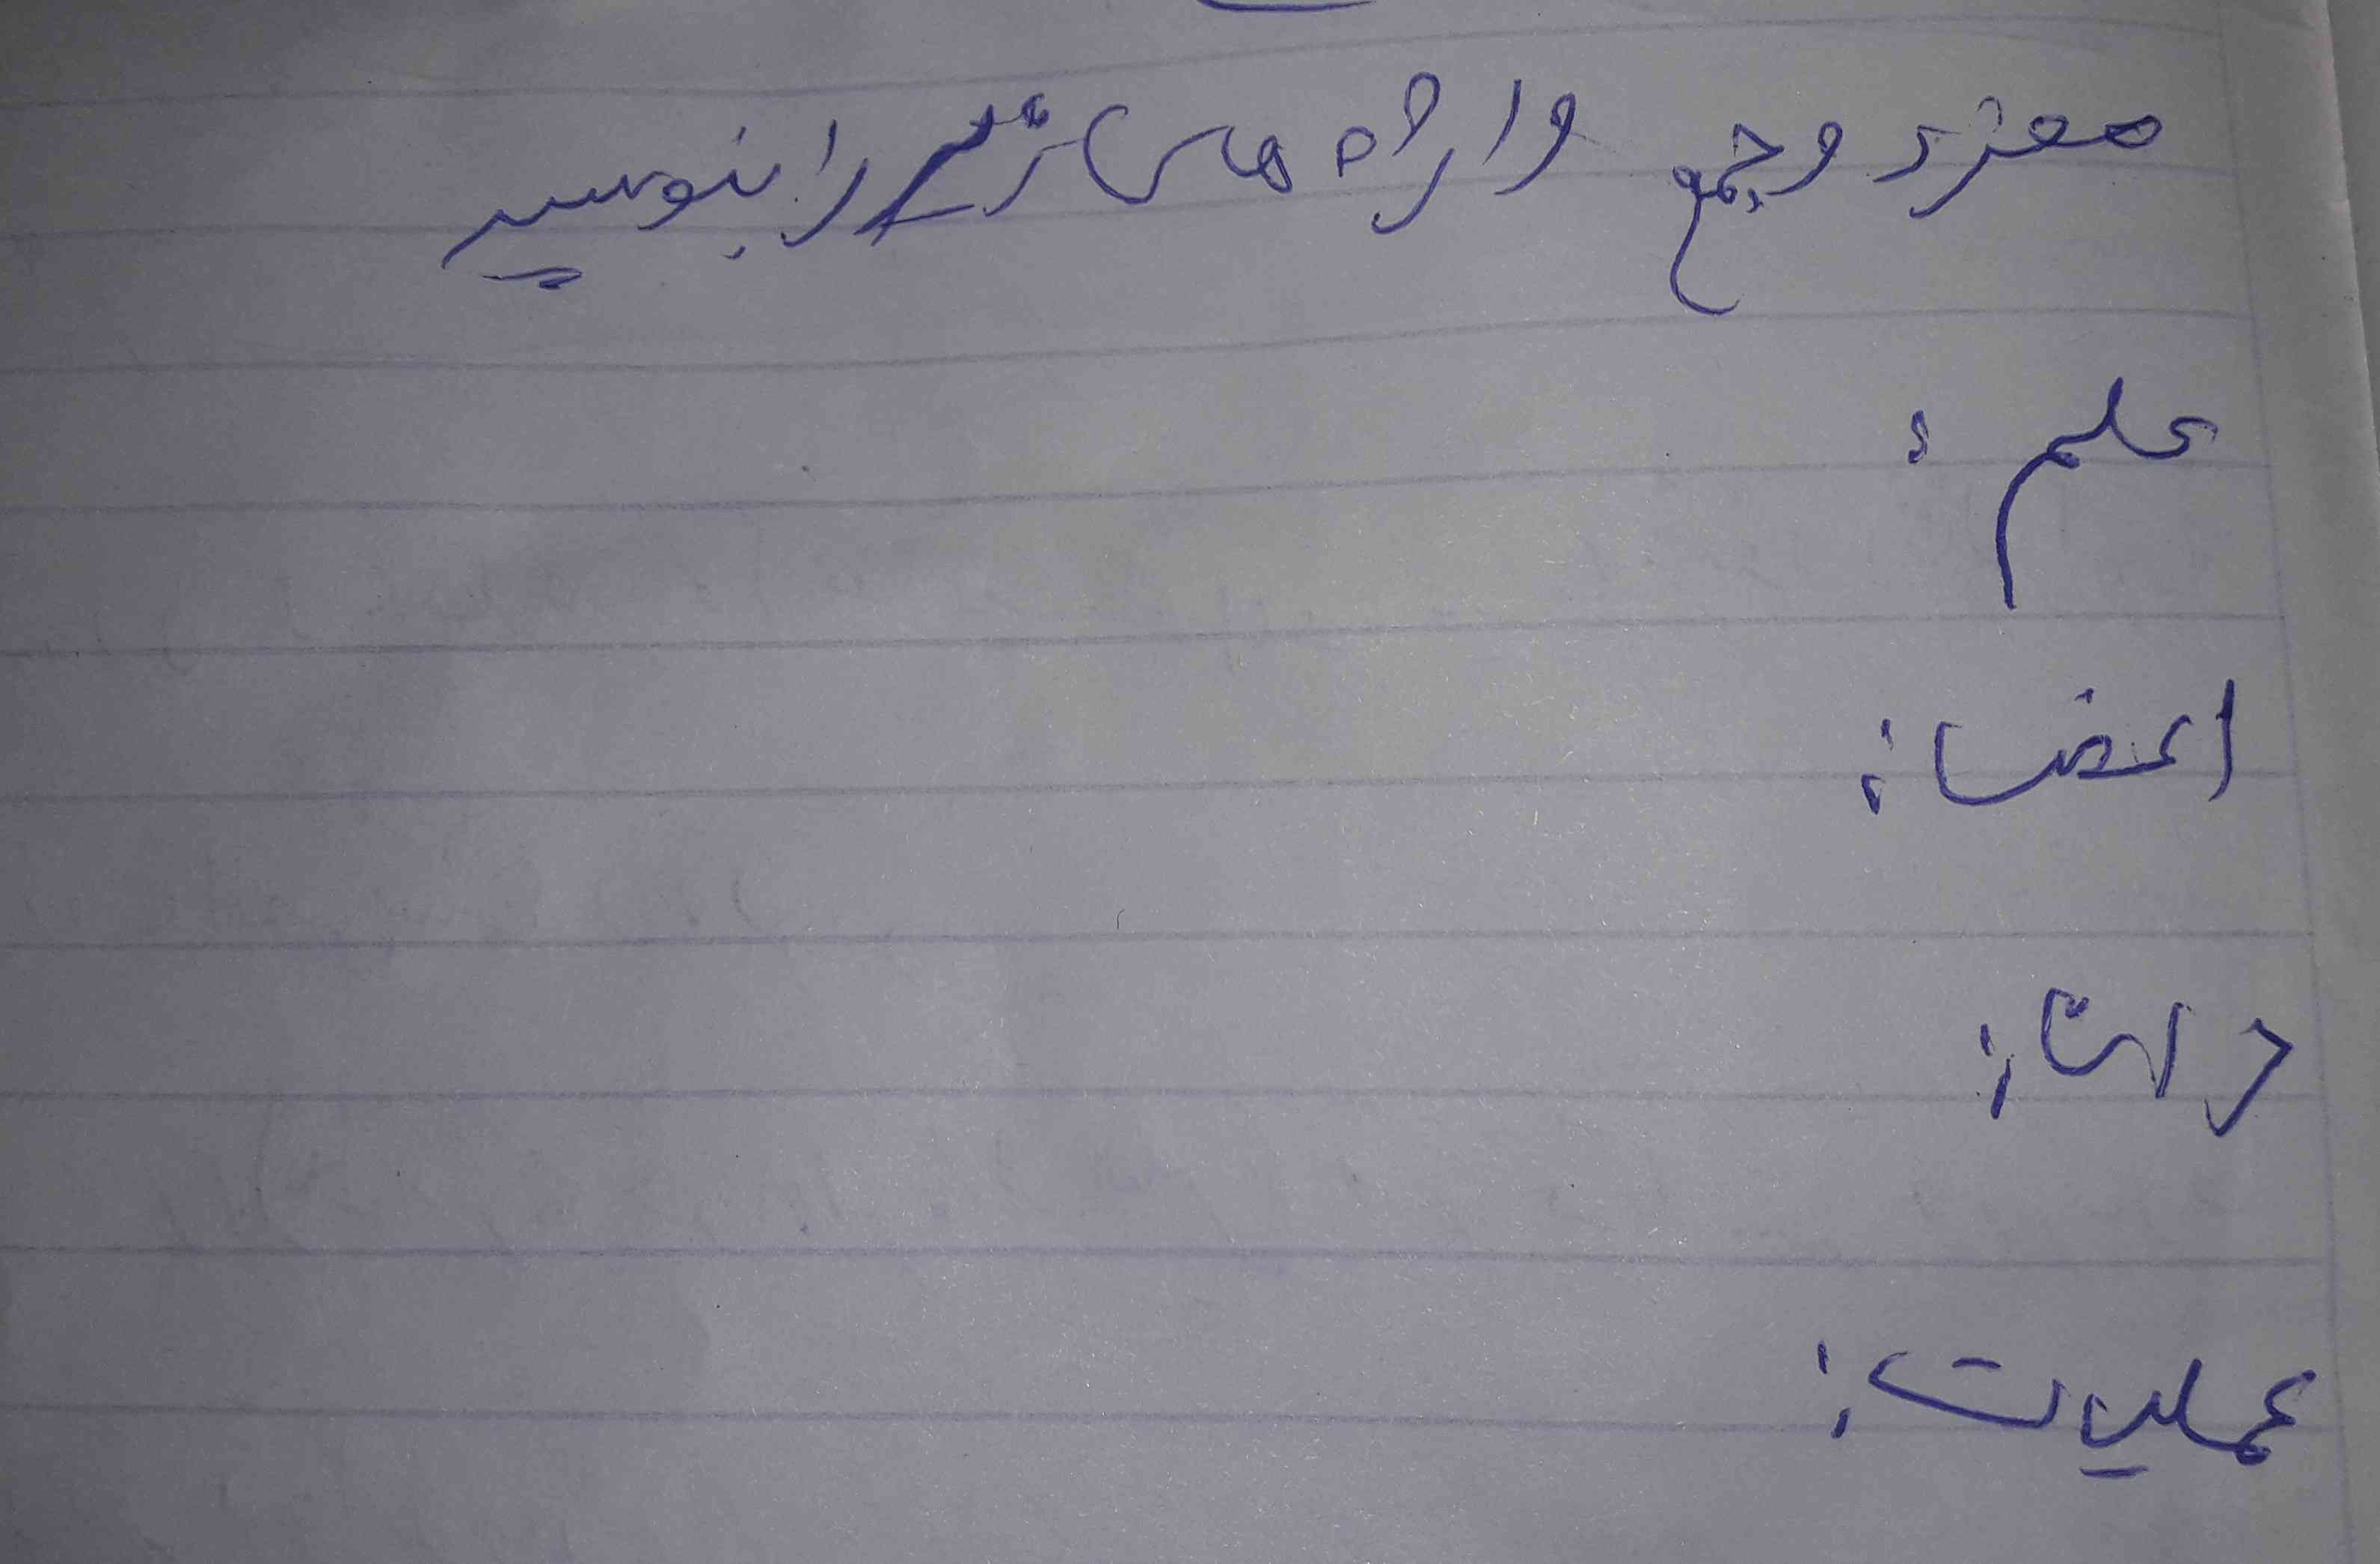 مفرد و جمع واژه های زیر را بنویسید
علم :
اعضا :
عملیات :